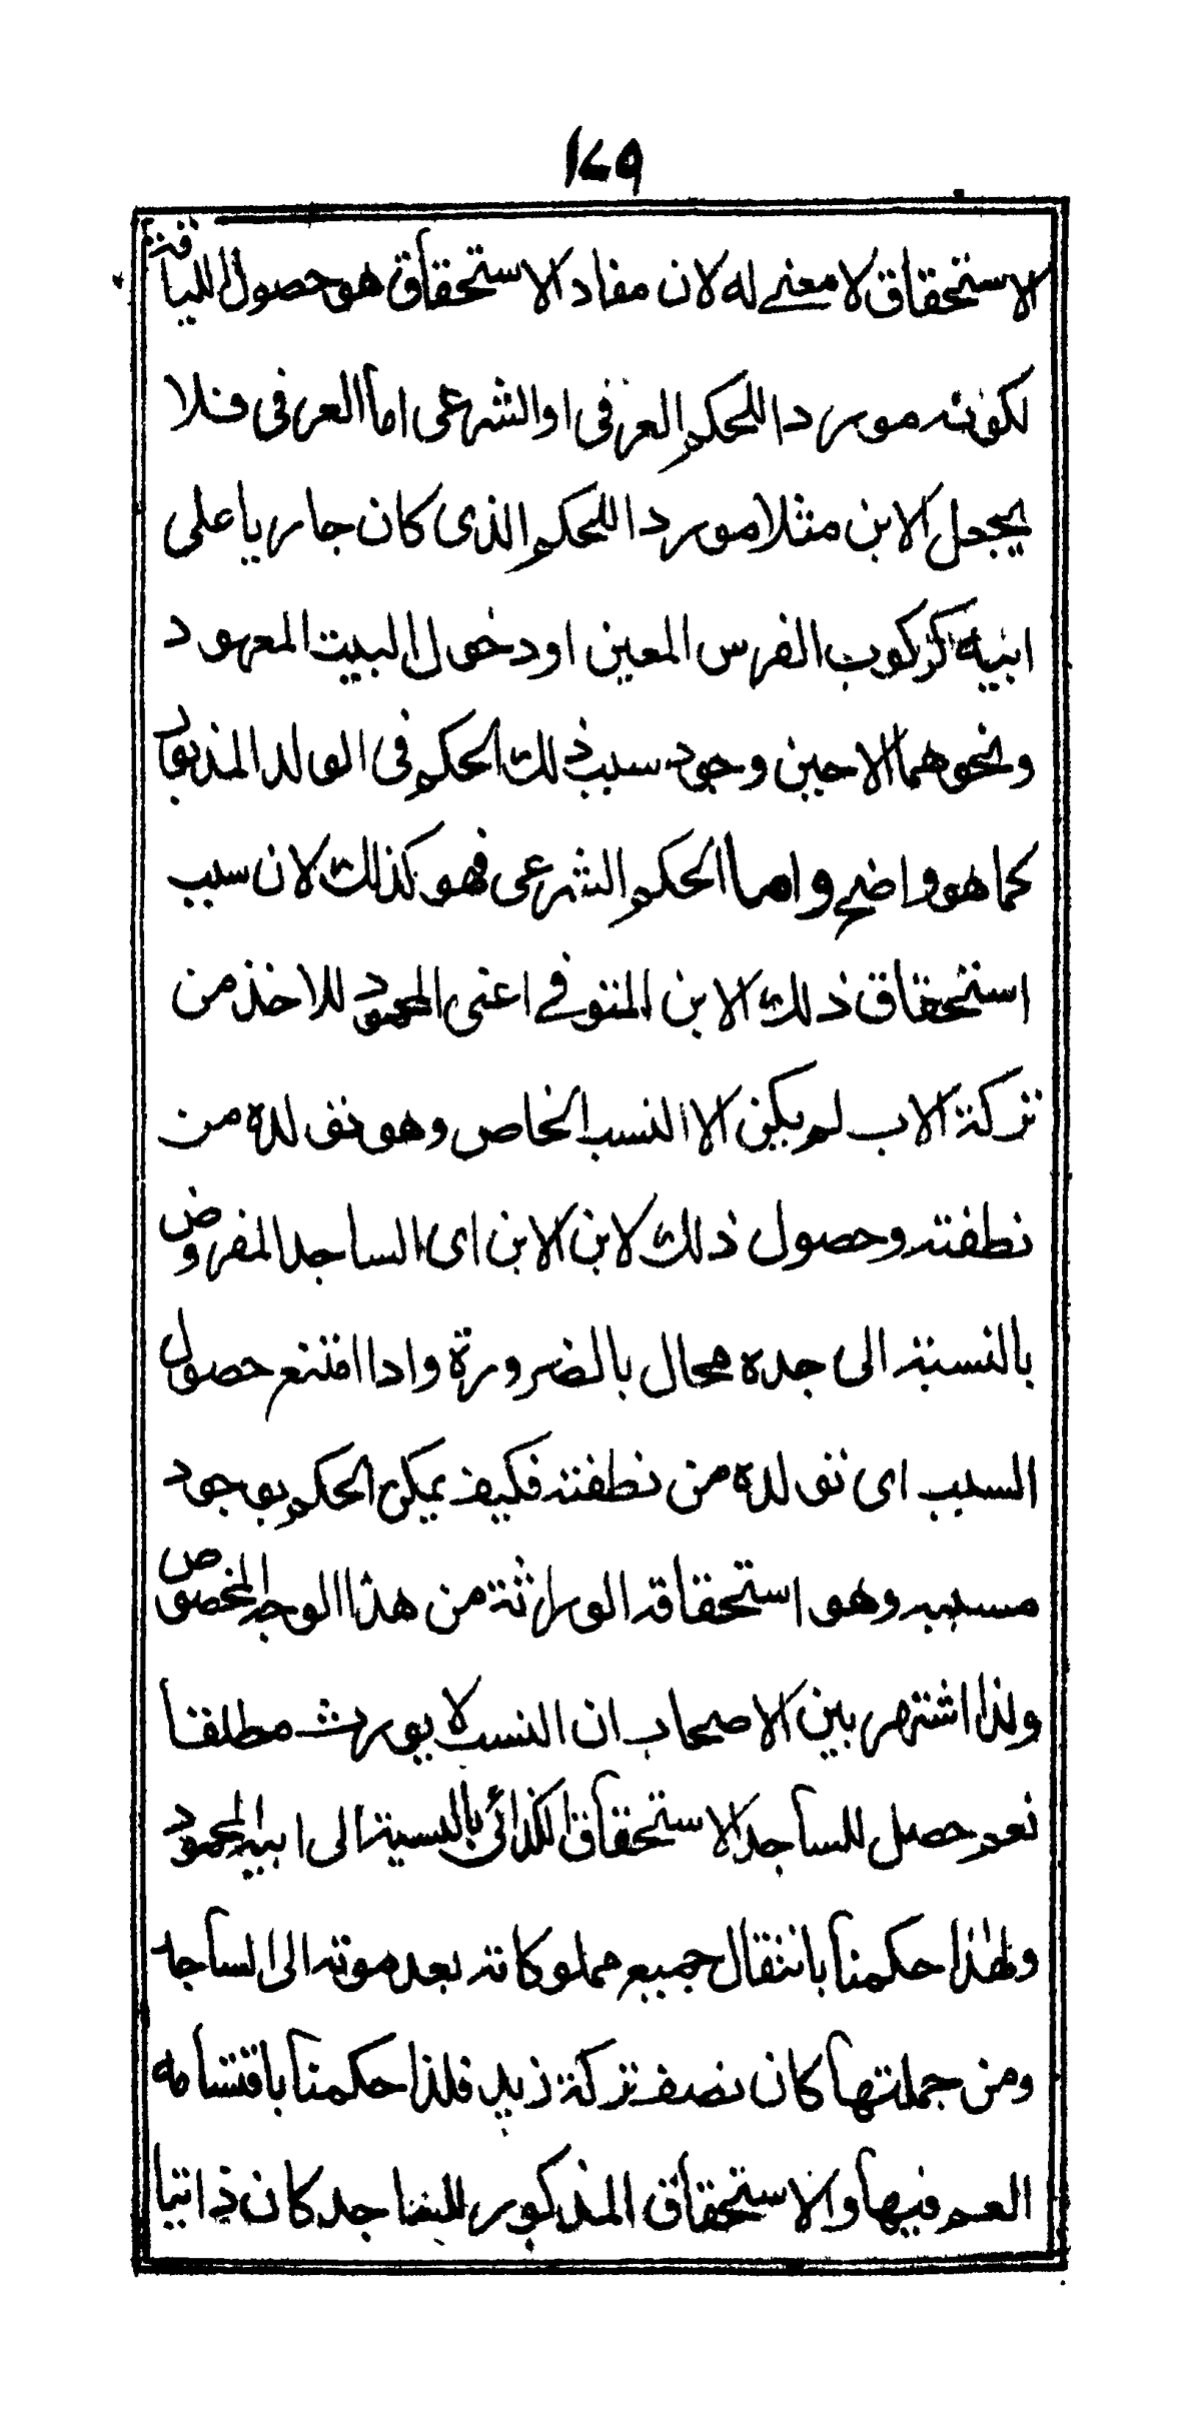 ١٤٩
الاستحقاق لا معنے له لان مفاد الاستحقاق هو حصول اللياقة
لكونه موردا للحكم العرفى او الشرعى اما العرفى فلا
يجعل الابن مثلا موردا للحكم الذى كان جاريا على
ابيه كركوب الفرس المعين او دخول البيت المعهود
ونحوهما الا حين وجود سبب ذلك الحكم فى الولد المذبور
كما هو واضح واما الحكم الشرعى فهو كذلك لان سبب
استحقاق ذلك الابن المتوفے اعنى المحمود للاخذ من
تركة الاب لم يكن الا النسب الخاص وهو تولده من
نطفته وحصول ذلك لابن الابن اى الساجد المفروض
بالنسبة الى جده محال بالضرورة واذا امتنع حصول
السبب اى تولده من نطفته فكيف يمكن الحكم بوجود
مسببه وهو استحقاقه الوراثة من هذا الوجه المخصوص
ولذا اشتهر بين الاصحاب ان النسب لا يورث مطلقا
نعم حصل للساجد الاستحقاق الذاتى بالنسبة الى ابيه المحمود
ولهذا حكمنا بانتقال جميع مملوكاته بعد موته الى الساجد
ومن جملتها كان نصف تركة زيد فلذا حكمنا باقتسامه
العم فيها والاستحقاق المذكور للساجد كان ذاتيا